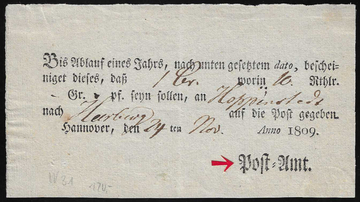 Bis Ablauf eines Jahrs, nach unten gesetztem dato, beschei-
niget dieses, daß 1 Br. worin 10. Rthlr.
- Gr. - pf. seyn sollen, an Hoppenstedt
nach Harburg auf die Post gegeben.
Hannover, den 24 ten Nov. Anno 1809.
Post-Amt.